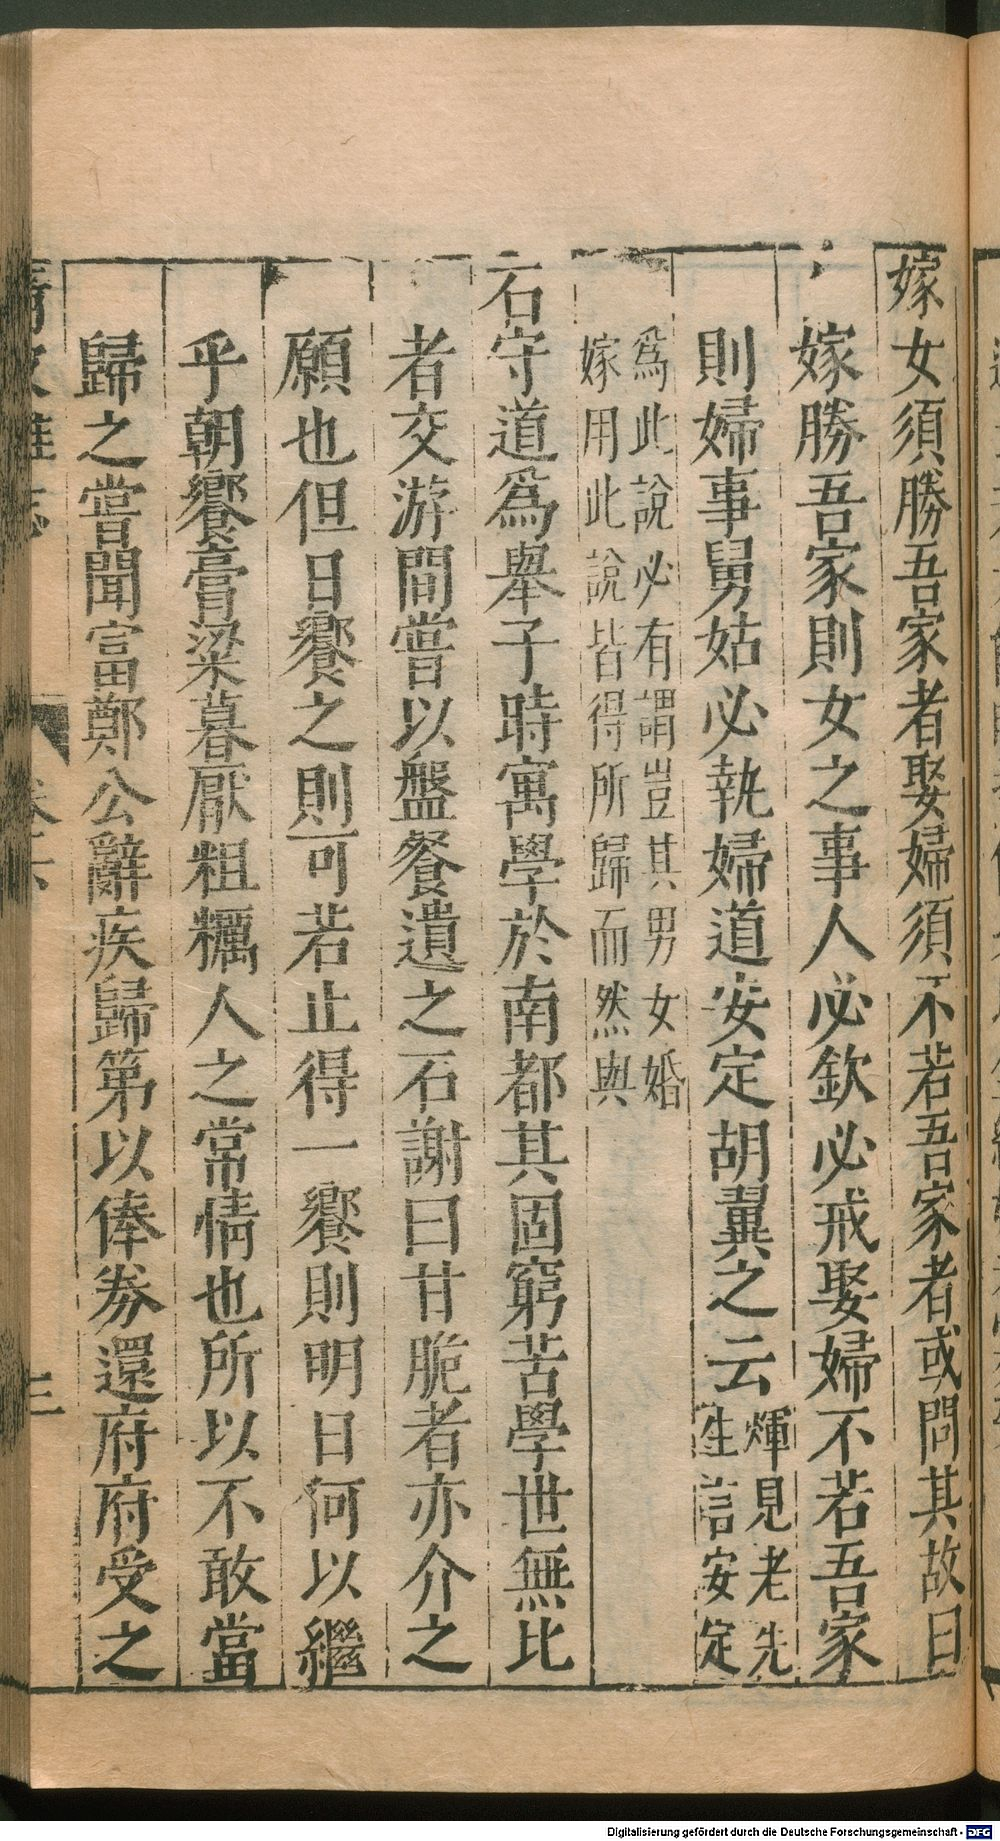 嫁女須勝吾家者娶婦須不若吾家者或問其故曰
嫁勝吾家則女之事人必欽必戒娶婦不若吾家
則婦事舅姑必執婦道安定胡翼之云
煇見老先
生言安定
為此說必有謂豈其男女婚
嫁用此說皆得所歸而然與
石守道為舉子時寓學於南都其固窮苦學世無比
者交游間嘗以盤餐遺之石謝曰甘脆者亦介之
願也但日饗之則可若止得一饗則明日何以繼
乎朝饗膏粱暮厭粗糲人之常情也所以不敢當
歸之嘗聞富鄭公辭疾歸第以俸券還府府受之
三
Digitalisierung gefördert durch die Deutsche Forschungsgemeinschaft - DFG